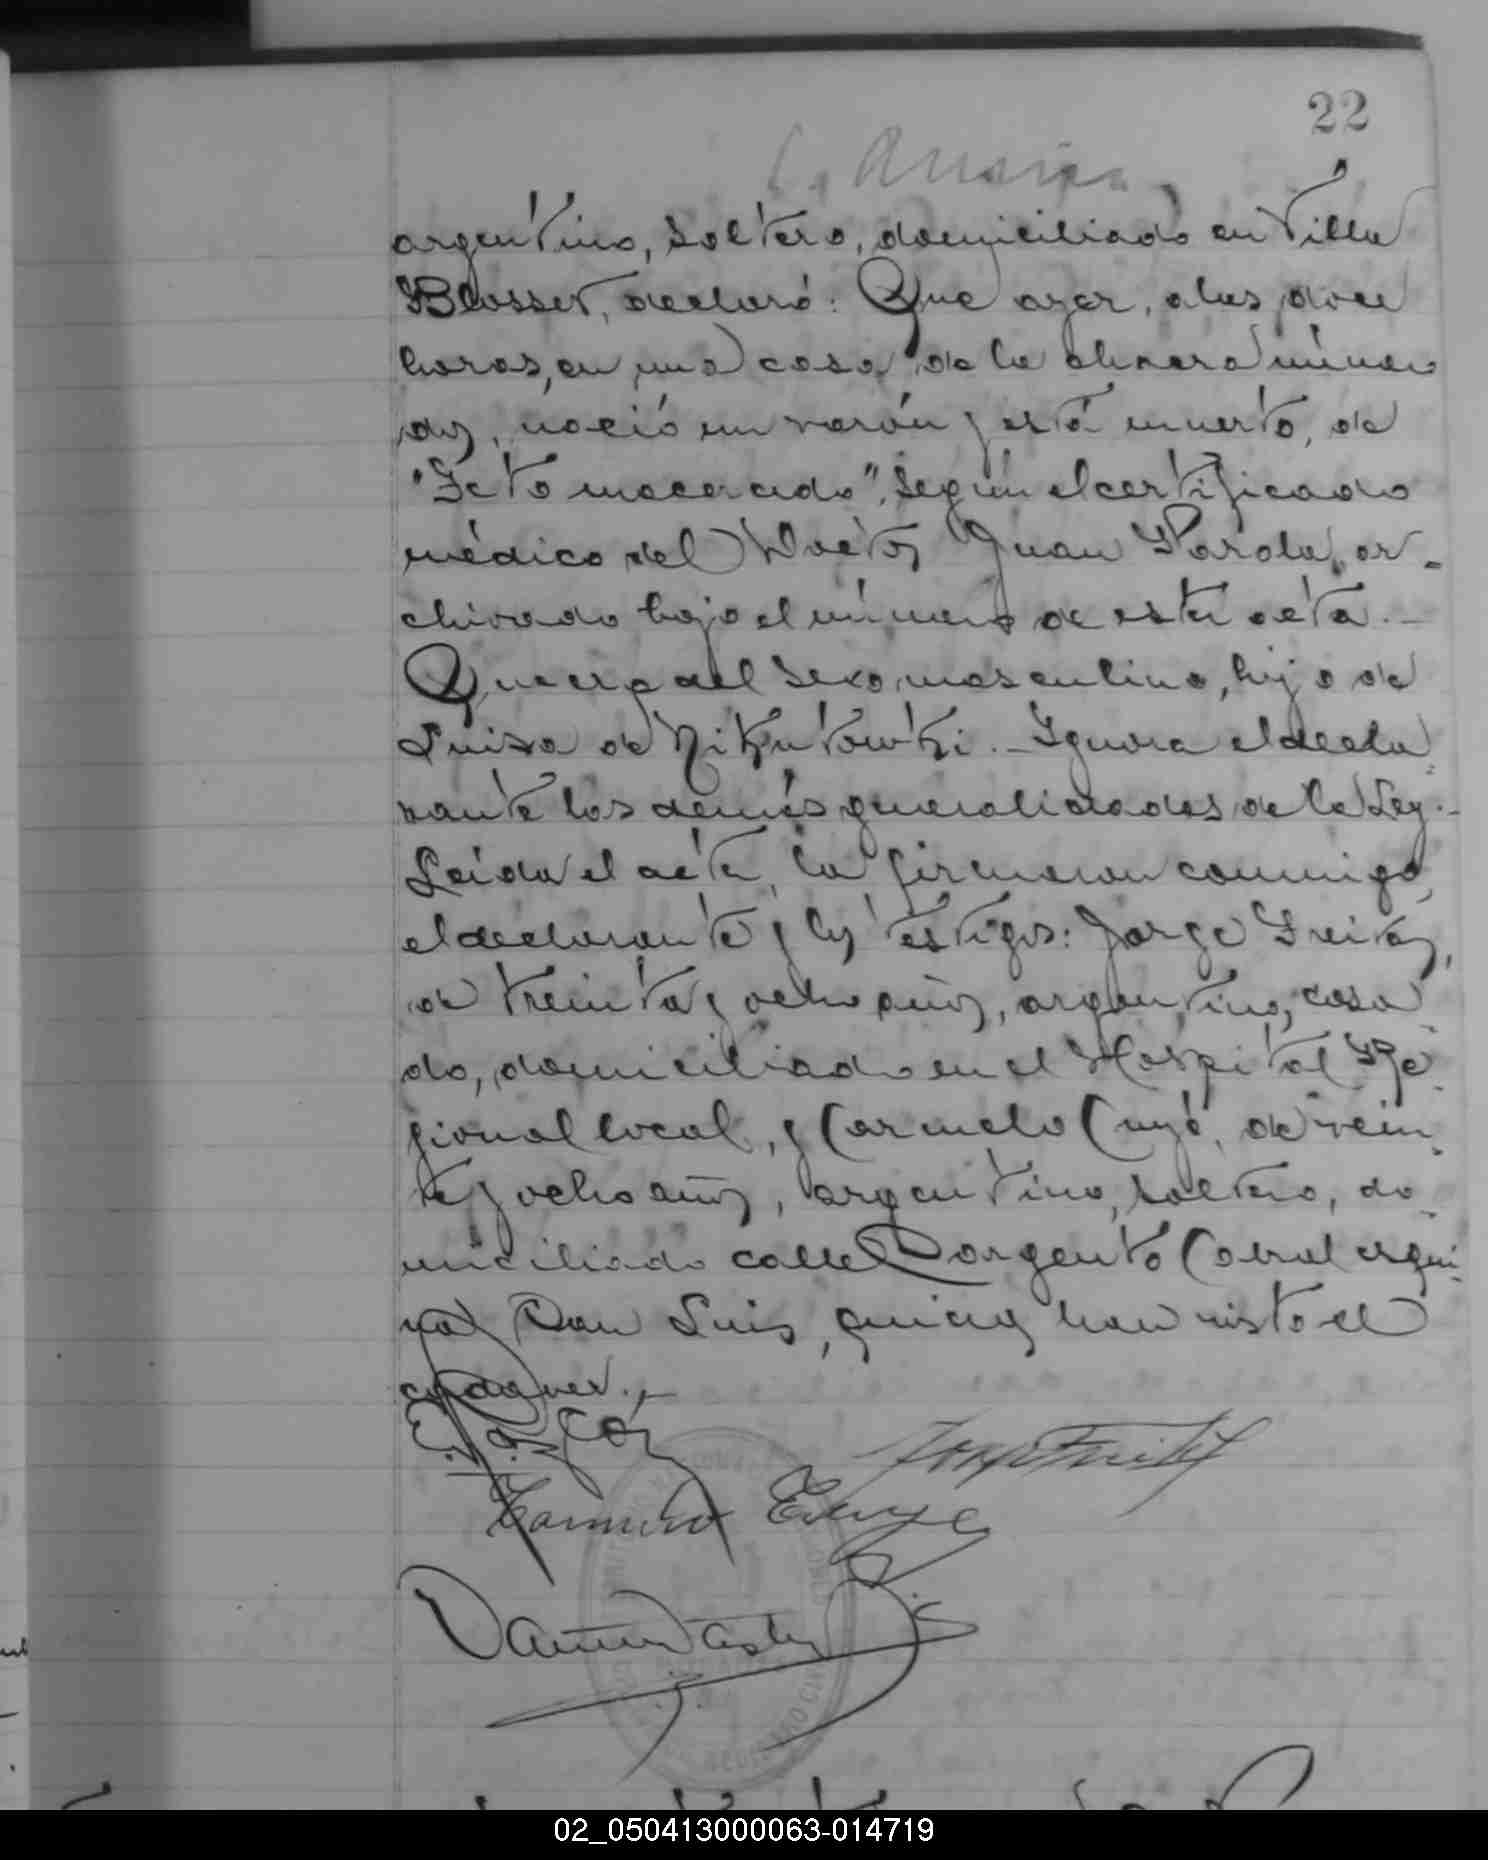 22
argentino, soltero, domiciliado en Villa
Blosset, declaró: Que ayer, a las doce
horas, en una casa de la chacra número
dos, nació un varón y está muerto, de
"Feto macerado", según el certificado
médico del Doctor Juan Parola, ar-
chivado bajo el número de esta acta.-
Que era del sexo masculino, hijo de
Luisa de Nikutowski.- Ignora el decla-
rante las demás generalidades de la Ley.-
Leída el acta, la firmaron conmigo,
el declarante y los testigos: Jorge Freites,
de treinta y ocho años, argentino, casa-
do, domiciliado en el Hospital Re-
gional local, y Carmelo Cuyé, de vein-
te y ocho años, argentino, soltero, do-
miciliado calle Sargento Cabral esqui-
na San Luis, quienes han visto el
cadaver.-
02_050413000063-014719